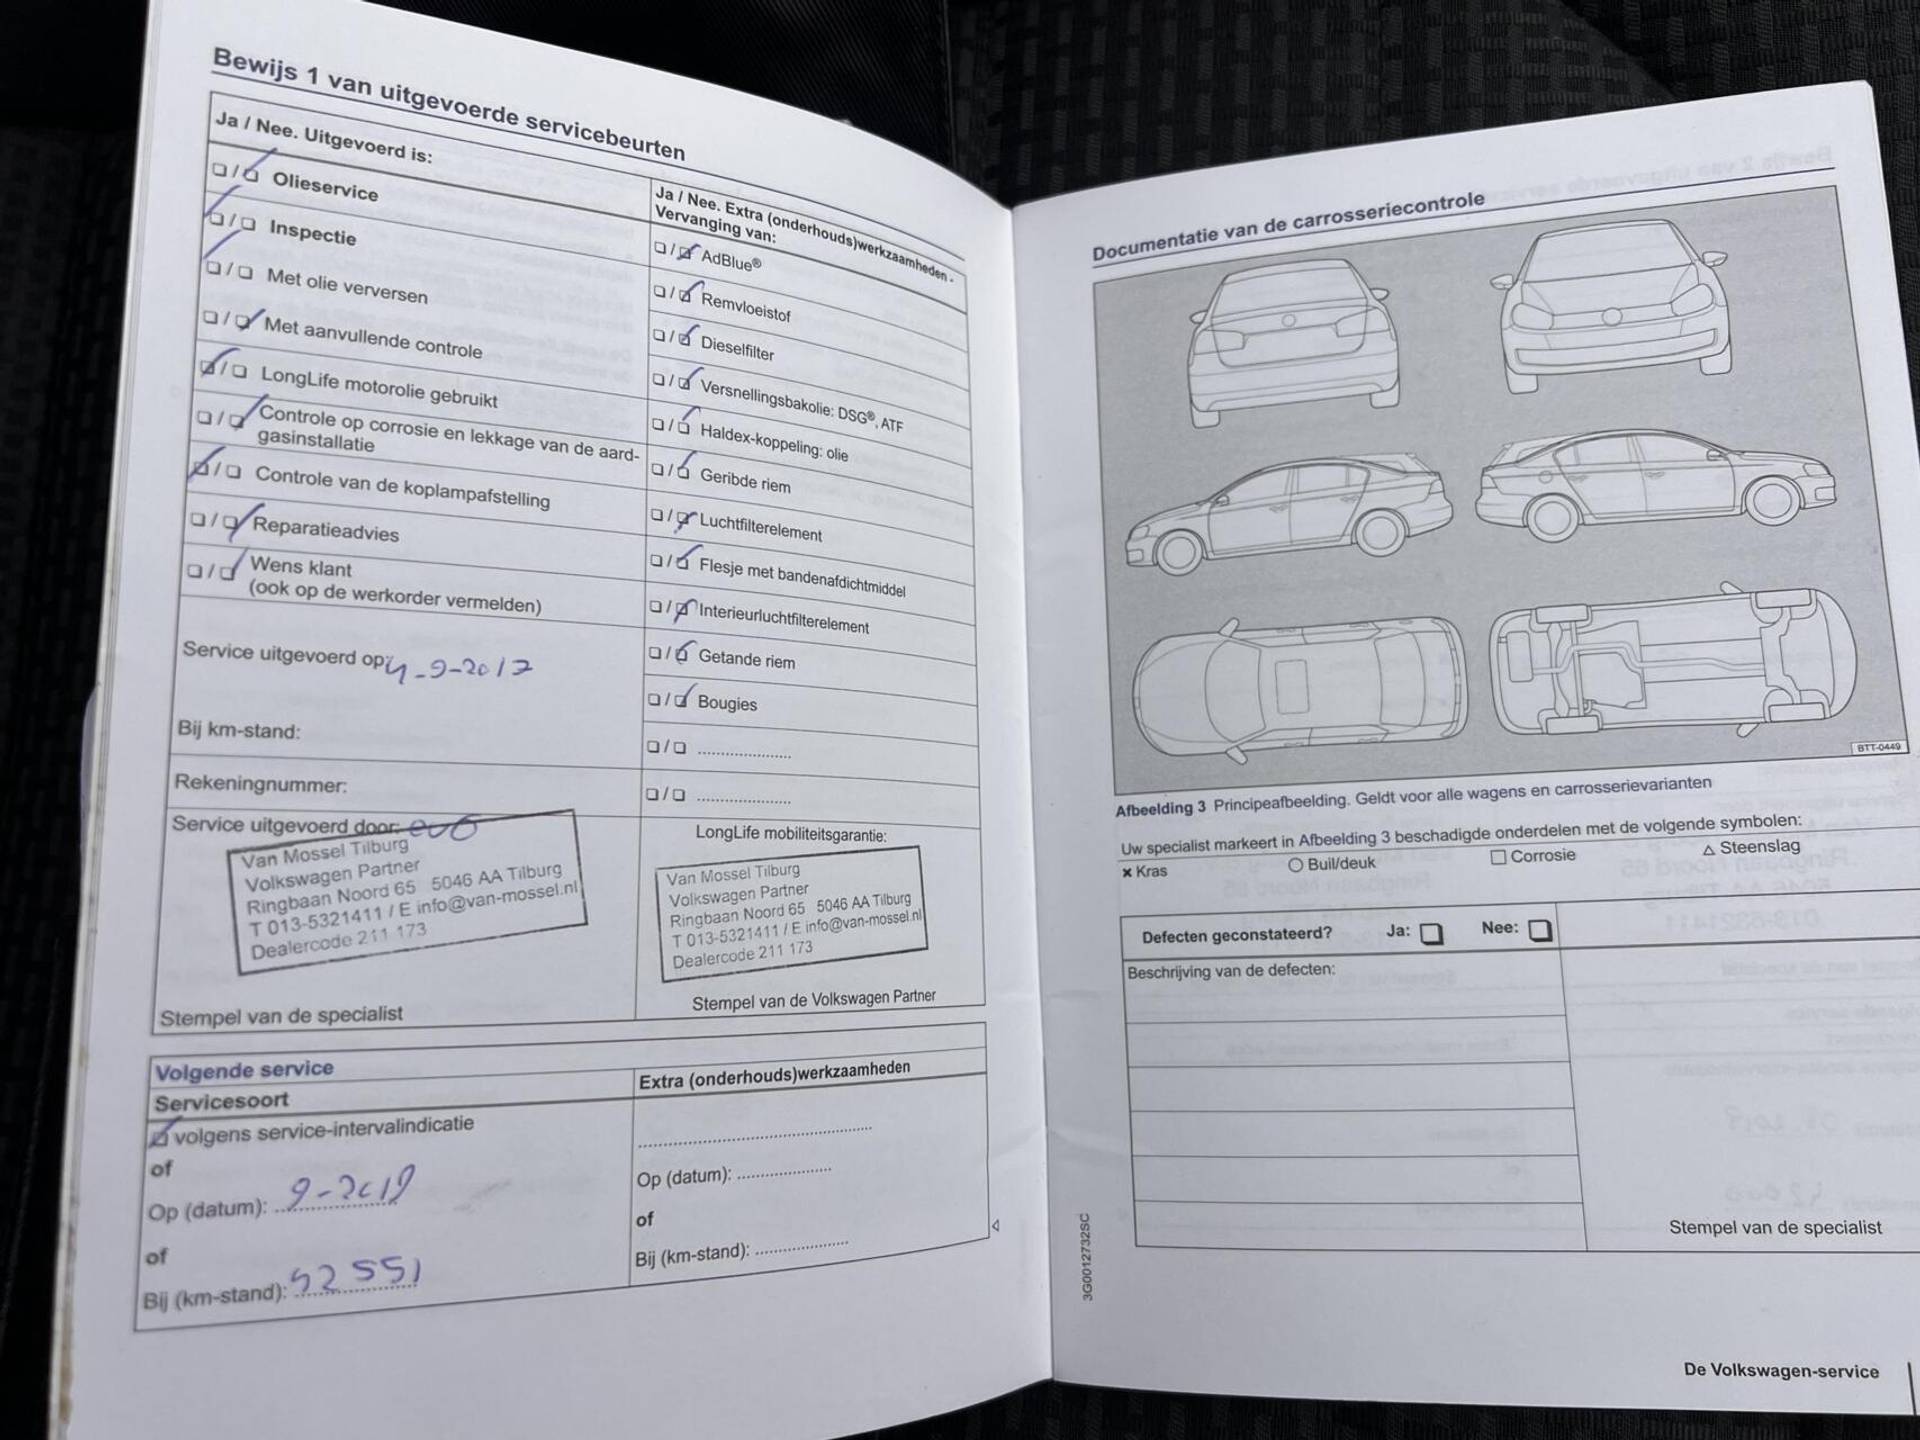 Bewijs 1 van uitgevoerde servicebeurten
Ja / Nee. Uitgevoerd is:
Olieservice
Inspectie
Met olie verversen
Met aanvullende controle
LongLife motorolie gebruikt
Controle op corrosie en lekkage van de aard-
gasinstallatie
Controle van de koplampafstelling
Reparatieadvies
Wens klant
(ook op de werkorder vermelden)
Service uitgevoerd op: 4-9-2017
Bij km-stand:
Rekeningnummer:
Service uitgevoerd door:
Van Mossel Tilburg
Volkswagen Partner
Ringbaan Noord 65 5046 AA Tilburg
T 013-5321411 / E info@van-mossel.nl
Dealercode 211 173
Stempel van de specialist
Ja / Nee. Extra (onderhouds)werkzaamheden -
Vervanging van:
AdBlue®
Remvloeistof
Dieselfilter
Versnellingsbakolie: DSG®, ATF
Haldex-koppeling: olie
Geribde riem
Luchtfilterelement
Flesje met bandenafdichtmiddel
Interieurluchtfilterelement
Getande riem
Bougies
/ ....................
/ ....................
LongLife mobiliteitsgarantie:
Van Mossel Tilburg
Volkswagen Partner
Ringbaan Noord 65 5046 AA Tilburg
T 013-5321411 / E info@van-mossel.nl
Dealercode 211 173
Stempel van de Volkswagen Partner
Volgende service
Servicesoort
volgens service-intervalindicatie
of
Op (datum): 9-2019
of
Bij (km-stand): 52551
Extra (onderhouds)werkzaamheden
Op (datum): ....................
of
Bij (km-stand): ....................
Documentatie van de carrosseriecontrole
BTT-0449
Afbeelding 3 Principeafbeelding. Geldt voor alle wagens en carrosserievarianten
Uw specialist markeert in Afbeelding 3 beschadigde onderdelen met de volgende symbolen:
× Kras ○ Buil/deuk □ Corrosie △ Steenslag
Defecten geconstateerd? Ja: Nee:
Beschrijving van de defecten:
Stempel van de specialist
3G0012732SC
De Volkswagen-service